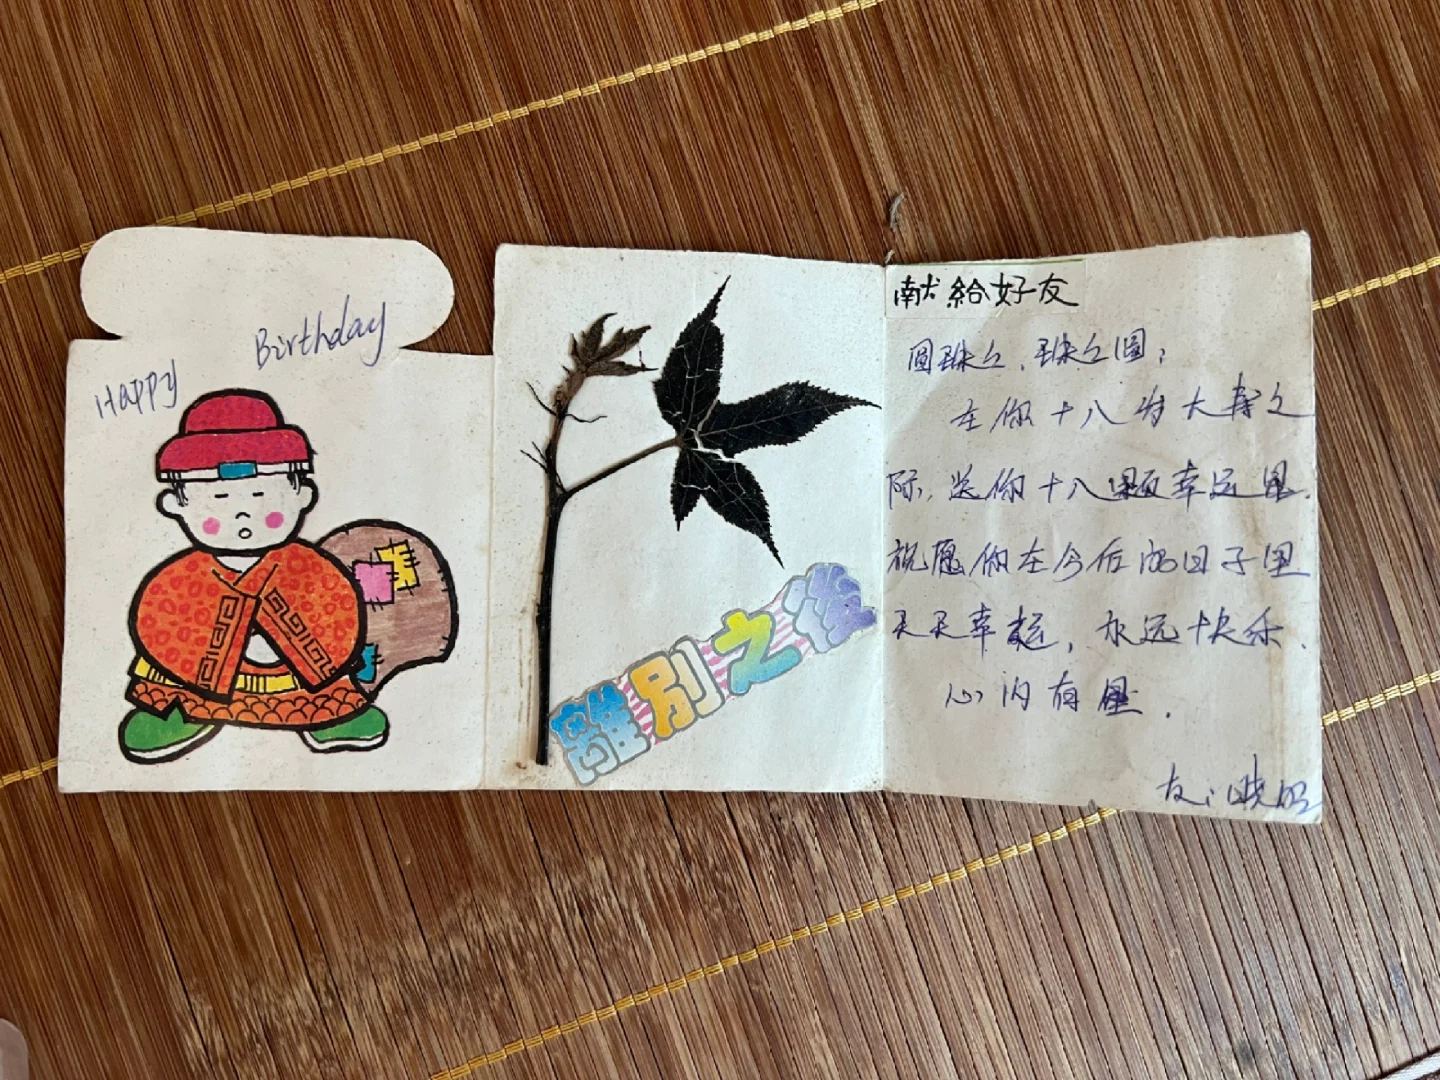 Happy Birthday
離別之後
献給好友
圆珠之、珠之圆：
在你十八岁大寿之
际，送你十八颗幸运星.
祝愿你在今后的日子里
天天幸运，永远快乐.
心内有星.
友：晓